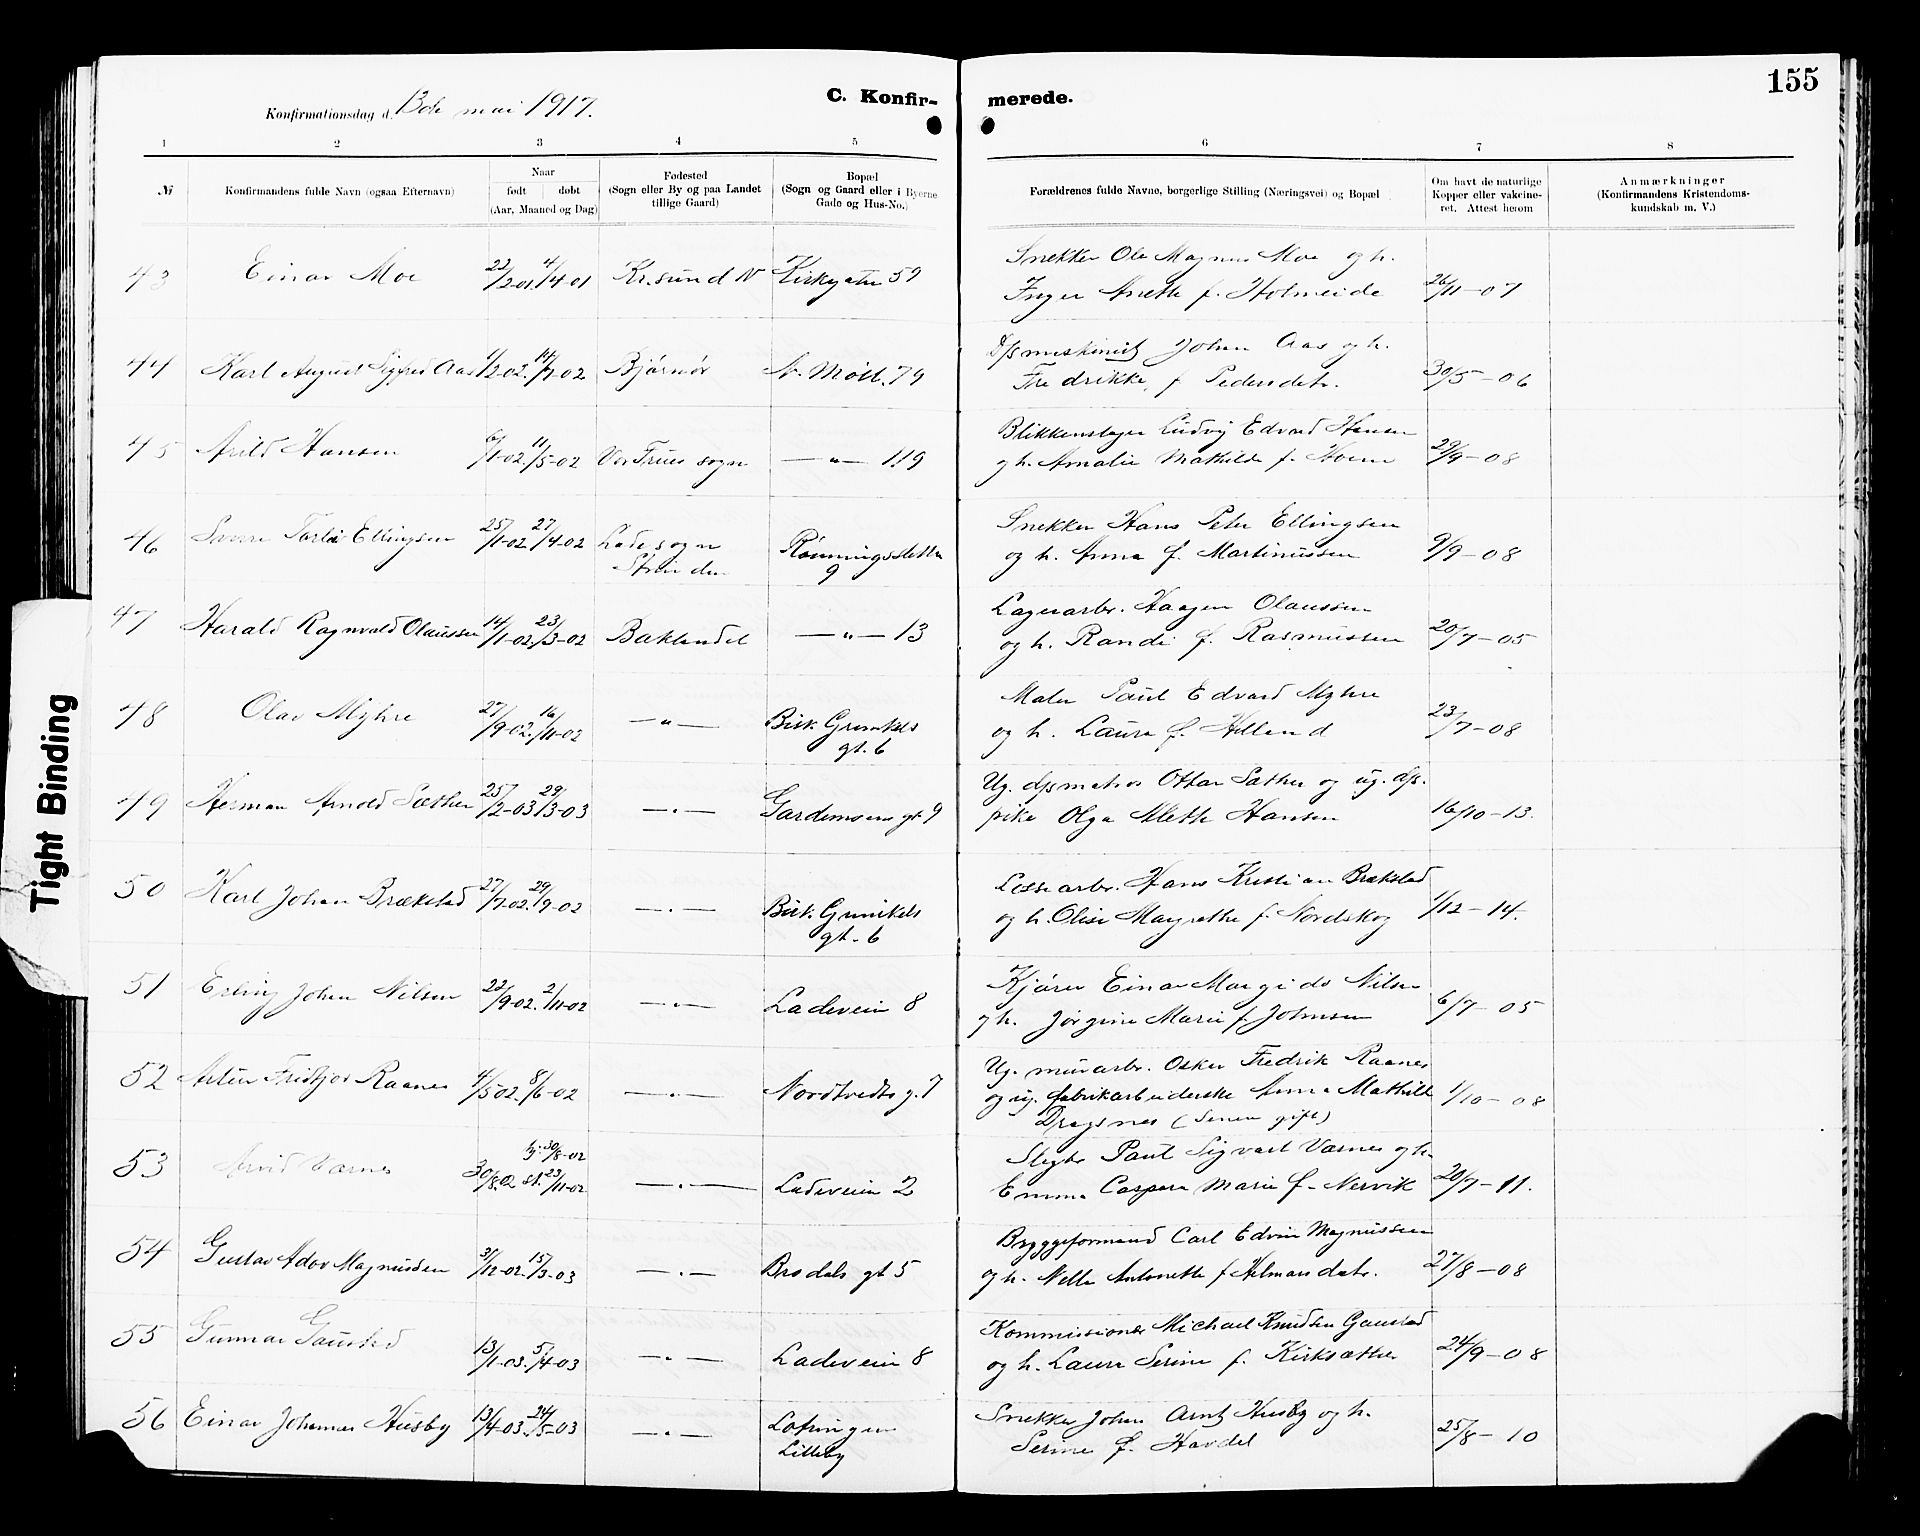 155
C. Konfir- merede.
Konfirmationsdag d. 13de mai 1917.
1 2 3 4 5 6 7 8
№
Konfirmandens fulde Navn (ogsaa Efternavn)
Naar
født døbt
(Aar, Maaned og Dag)
Fødested
(Sogn eller By og paa Landet
tillige Gaard)
Bopæl
(Sogn og Gaard eller i Byerne
Gade og Hus-No.)
Forældrenes fulde Navne, borgerlige Stilling (Næringsvei) og Bopæl
Om havt de naturlige
Kopper eller vakcine-
ret. Attest herom
Anmærkninger
(Konfirmandens Kristendoms-
kundskab m. V.)
43 Einar Moe 22/2-01. 4/4-01 Kr.sund N Kirkegaten 59 Snekker Ole Magnus Moe og h.
Inger Anette f. Holmeide 26/11-07
44 Karl August Sigfred Aas 1/2-02. 14/7-02 Bjørnør N. Møll. 79 D/s maskinist Johan Aas og h.
Fredrikke, f. Pedersdatr. 30/5-06
45 Arild Hansen 6/1-02. 11/5-02 Vor Frues sogn —"— 119 Blikkenslager Ludvig Edvard Hansen
og h. Amalie Mathilde f. Hoem 29/9-08
46 Sverre Torleif Ellingsen 25/1-02. 27/4-02 Lade sogn
Strinden
Rønningsletten
9
Snekker Hans Peter Ellingsen
og h. Anna f. Martinussen 9/9-08
47 Harald Ragnvald Olaussen 14/1-02. 23/3-02 Baklandet —"— 13 Lagerarbr. Haagen Olaussen
og h. Randi f. Rasmussen 20/7-05
48 Olav Myhre 27/9-02. 16/11-02 —"— Bisk. Grimkels
gt. 6
Maler Paul Edvard Myhre
og h. Laura f. Hilland 23/7-08
49 Herman Arnold Sæther 25/2-03. 29/3-03 —"— Gardemoens gt. 9 Ug. d/s matros Ottar Sæther og ug. d/s.
pike Olga Alette Hansen 16/10-13.
50 Karl Johan Brækstad 27/7-02. 29/9-02 —"— Bisk. Grimkels
gt. 6
Lossearbr. Hans Kristian Brækstad
og h. Olise Margrethe f. Nordskog 1/12-14.
51 Erling Johan Nilsen 22/9-02. 2/11-02 —"— Ladeveien 8 Kjører Einar Margido Nilsen
og h. Jørgine Marie f. Johnsen 6/7-05
52 Fridtjov Raanes 4/5 02. 8/6-02 —"— Nordtvedts g. 7 Ug. murarbr. Oskar Fredrik Raanes
og ug. fabrikarbeiderske Anna Mathilde
Dragsnes (senere gift) 1/10-08
53 Arvid Værnes 30/8 02 hj. 30/8-02
st. 23/11-02 —"— Ladeveien 2 Slagter Paul Sigvart Værnes og h.
Emma Caspara Marie f. Nervik 20/7-11.
54 Gustav Adov Magnussen 31/12-02. 15/3-03 —"— Brodals gt 5 Bryggeformand Carl Edvin Magnussen
og h. Nella Antonette f. Hilmarsdatr. 27/8-08
55 Gunnar Gaustad 13/1-03. 5/4-03 —"— Ladeveien 8 Kommissionær Michael Knudsen Gaustad
og h. Laura Serine f. Kirksæther 24/9-08
56 Einar Johannes Husby 13/4-03. 24/5-03 —"— Lotringen
Lilleby
Snekker Johan Arnt Husby og h.
Serine f. Havdel 25/8-10
Tight Binding